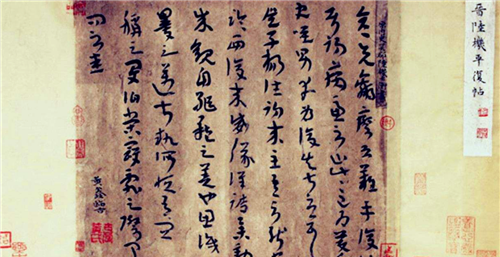 晉陸機平復帖
彦先羸瘵恐難平復
往屬初病慮不止此此已為慶
承使唯男幸為復失前憂耳
子楊往初來主吾不能盡
臨西復來威儀詳跱舉動
成觀自軀體之美也思識
量之邁前執所恒有宜
稱之夏伯榮寇亂之際聞
問不悉